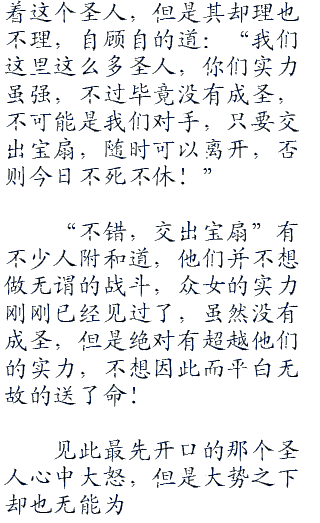 着这个圣人，但是其却理也
不理，自顾自的道：“我们
这里这么多圣人，你们实力
虽强，不过毕竟没有成圣，
不可能是我们对手，只要交
出宝扇，随时可以离开，否
则今日不死不休！”
“不错，交出宝扇”有
不少人附和道，他们并不想
做无谓的战斗，众女的实力
刚刚已经见过了，虽然没有
成圣，但是绝对有超越他们
的实力，不想因此而平白无
故的送了命！
见此最先开口的那个圣
人心中大怒，但是大势之下
却也无能为